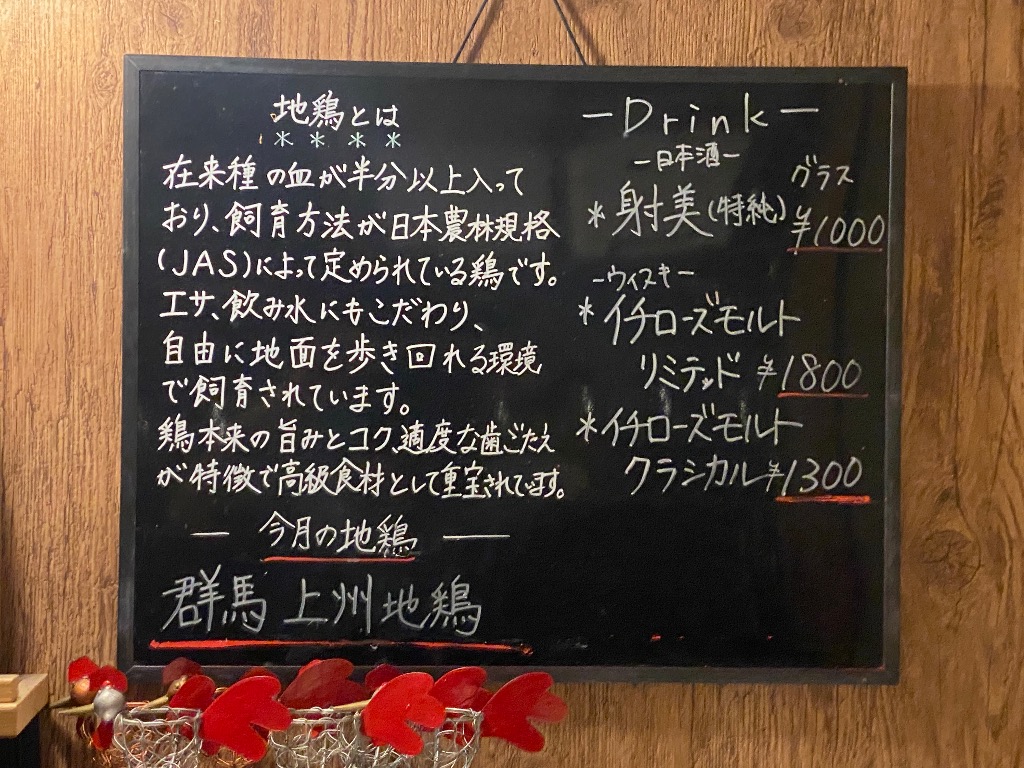 地鶏とは
＊＊＊＊
在来種の血が半分以上入って
おり、飼育方法が日本農林規格
(JAS)によって定められている鶏です。
エサ、飲み水にもこだわり、
自由に地面を歩き回れる環境
で飼育されています。
鶏本来の旨みとコク、適度な歯ごたえ
が特徴で高級食材として重宝されています。
― 今月の地鶏 ―
群馬 上州地鶏
－Drink－
－日本酒－
グラス
＊射美(特純) ¥1000
－ウィスキー
＊イチローズモルト
リミテッド ¥1800
＊イチローズモルト
クラシカル ¥1300